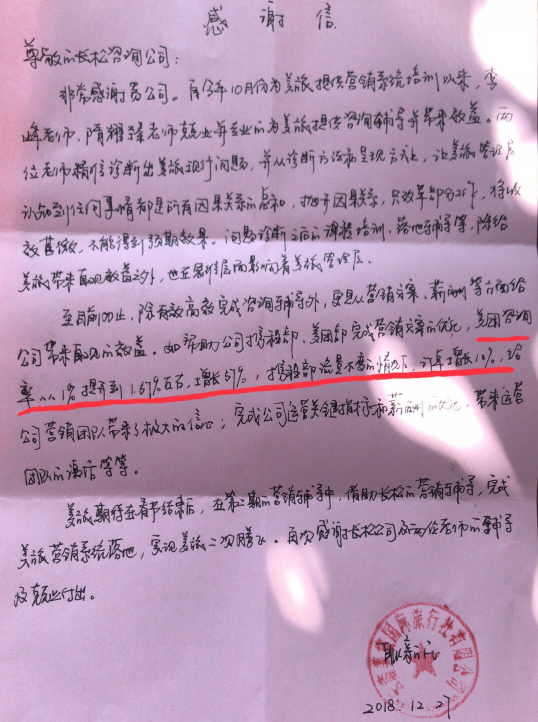 感谢信
尊敬的长松咨询公司：
非常感谢贵公司。自今年10月份为美旅提供营销系统培训以来，李
峰老师、隋耀臻老师兢业业的为美旅提供咨询辅导并带来效益。两
位老师精准诊断出美旅现行问题，并从诊断方法和呈现方式上，让美旅管理层
认知到任何事情都是所有因果关系的总和，抛开因果关系，只改革部分工作，将收
效甚微，不能得到预期效果。问题诊断之后的课程培训、落地辅导等，除给
美旅带来直观效益之外，也在影响着美旅管理层。
至目前为止，除有效高效完成咨询辅导外，更是从营销方案、薪酬等方面给
公司带来直观的效益。如帮助公司 部、美团部完成营销方案的优化，美团咨询
率从1%提升到1.57%左右，增长57%，部流量不变的情况下，订单增长10%，给
公司营销团队带来了极大的信心；完成公司运营关键指标和薪酬的优化，带来运营
团队的 等等。
美旅期待在春节结束后，在第二期的营销辅导中，借助长松的营销辅导，完成
美旅营销系统落地，实现美旅二次腾飞。再次感谢长松公司及两位老师的辅导
及 付出。
国际旅行社有限公司
2018.12.27